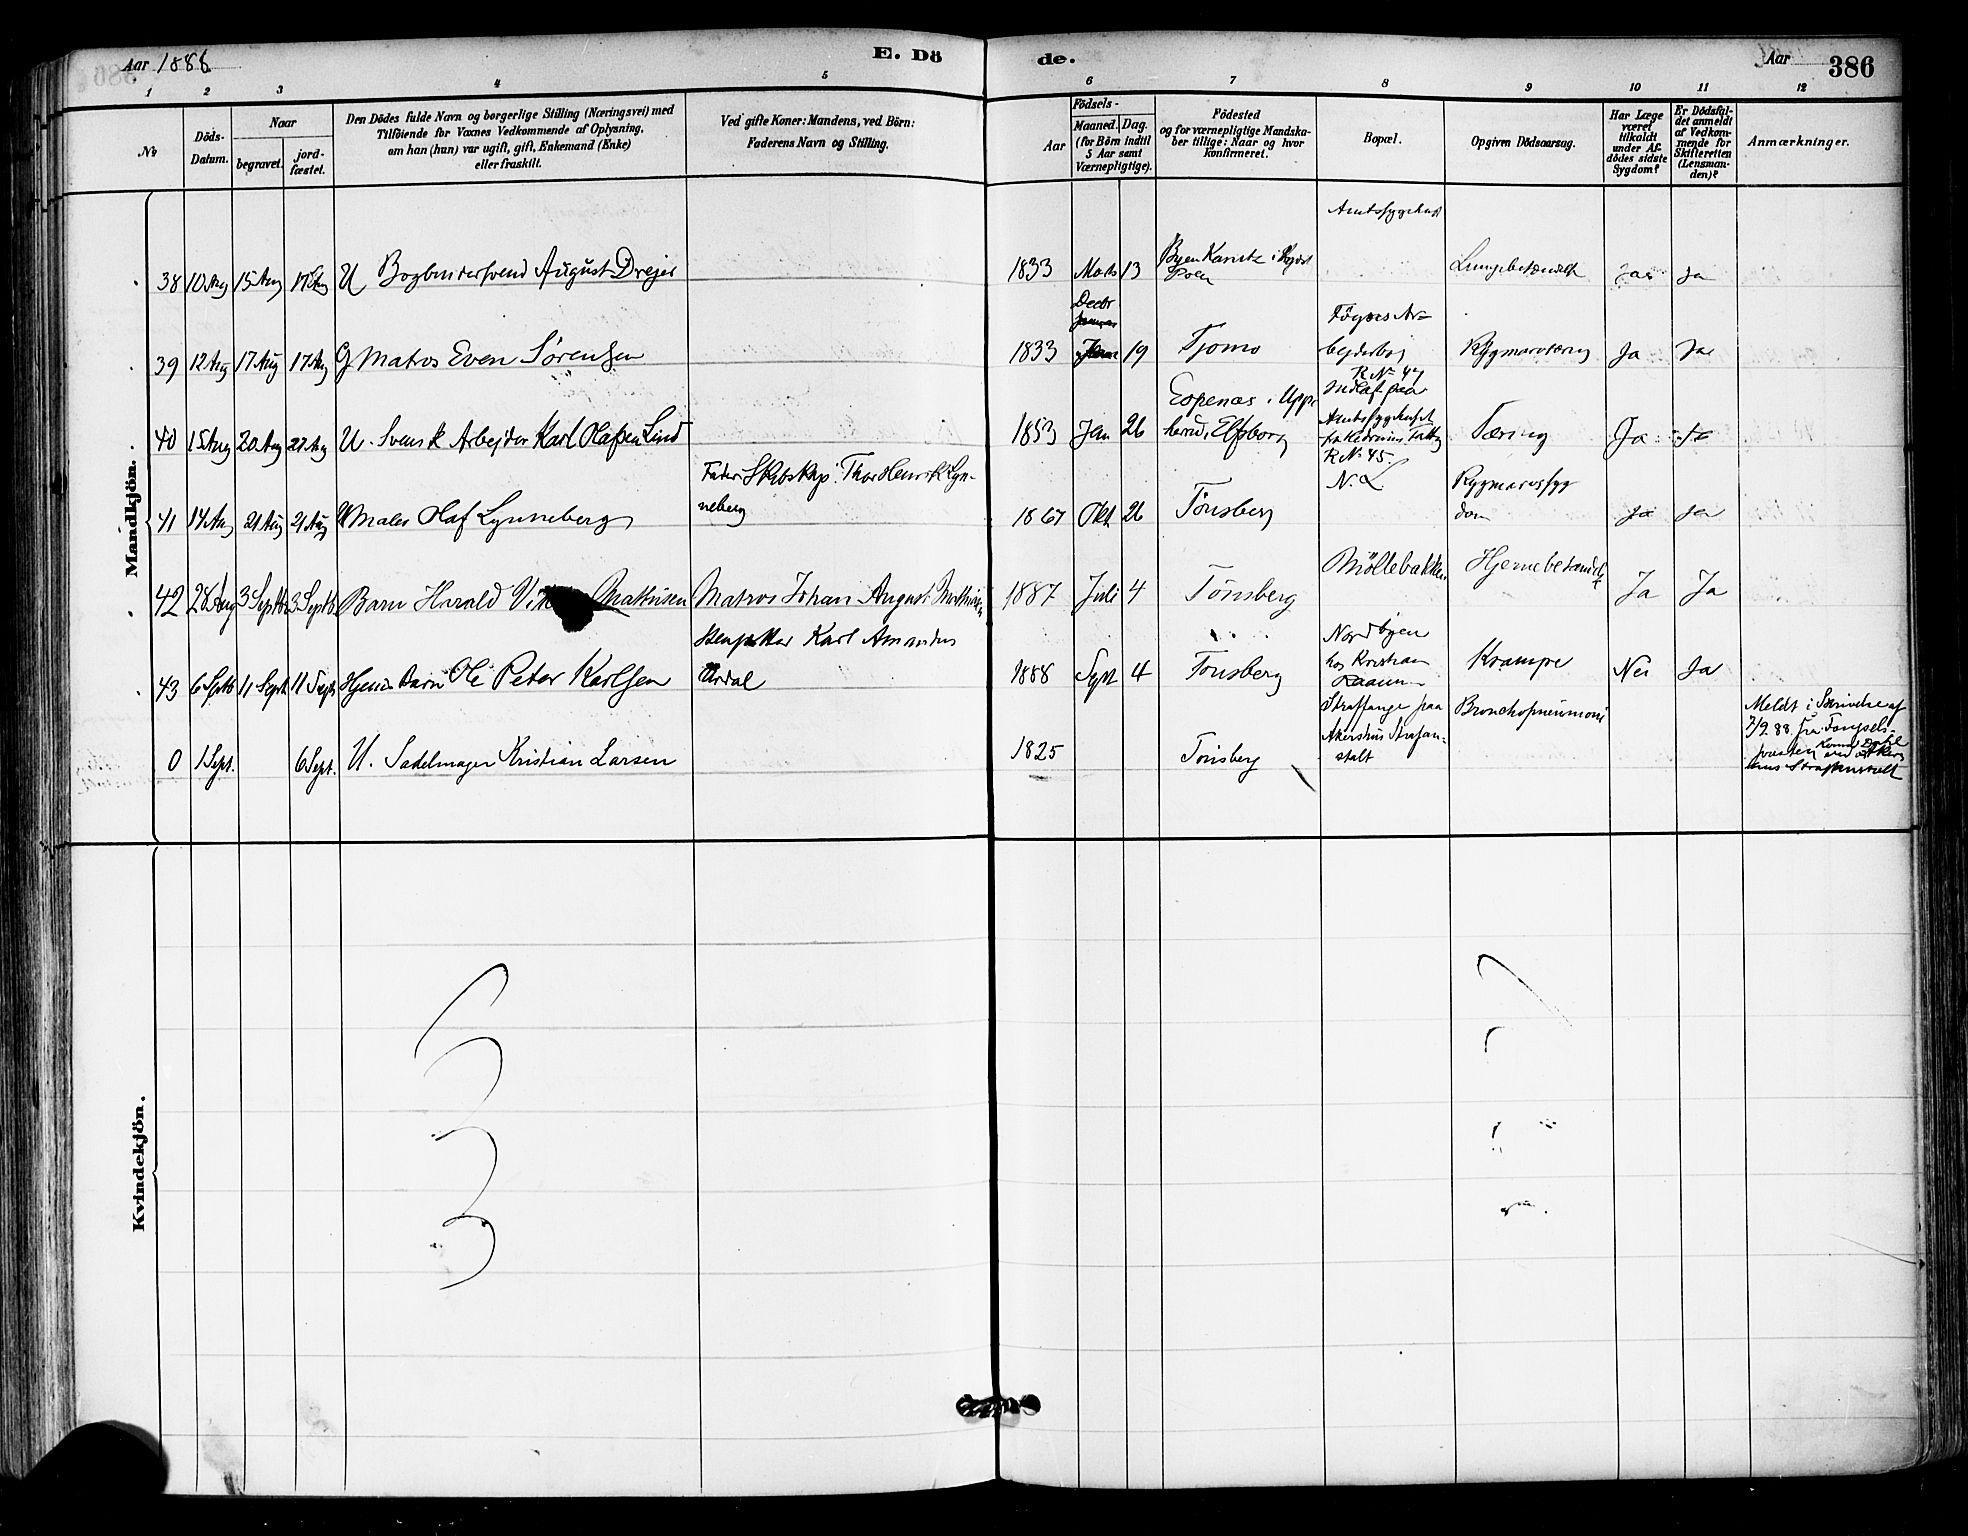 Aar 1888
E. Dö
de.
Aar
386
1 2 3 4 5 6 7 8 9 10 11 12
No
Döds-Datum.
Naar
begravet.
jord-fæstet.
Den Dödes fulde Navn og borgerlige Stilling (Næringsvei) med
Tilföiende for Voxnes Vedkommende af Oplysning,
om han (hun) var ugift, gift, Enkemand (Enke)
eller fraskilt.
Ved gifte Koner: Mandens, ved Börn:
Faderens Navn og Stilling.
Födsels-
Aar
Maaned. Dag.
(for Börn indtil
5 Aar samt
Værnepligtige).
Födested
og for værnepligtige Mandska-
ber tillige: Naar og hvor
konfirmeret.
Bopæl.
Opgiven Dödsaarsag.
Har Læge
været
tilkaldt
under Af-
dödes sidste
Sygdom?
Er Dödsfal-
det anmeldt
af Vedkom-
mende for
Skifteretten
(Lensman-
den)?
Anmærkninger.
Mandkjön.
Amtssygehuset
38 10 Aug 15 Aug 17 Aug U Bogbindersvend August Drejer 1833 Mads 13 Byen i Polen Lungebetændelse Ja
Decbr
39 12 Aug 17 Aug 17 Aug G Matros Even Sörensen 1833 19 Tjömö bejderbog Rygmarvstæring Ja Ja
R No 47
40 15 Aug 20 Aug 21 Aug U. Svensk Arbejder Karl Olafsen Lind 1853 Jan 26 Espenæs i Uppherred, Elfsborg Indlaf paa Amtssygehuset Tæring Ja Ja
R No 45
41 14 Aug 21 Aug 21 Aug U Maler Olaf Lynneberg Fader Skibskap. Thor Henrik Lynneberg 1867 Okt 26 Tönsberg N. L. Rygmarvssygdom Ja Ja
42 28 Aug 3 Septb 3 Septb Barn Harald Mathisen Matros Johan August Mathisen 1887 Juli 4 Tönsberg Möllebakken Hjernebetændelse Ja Ja
43 6 Septb 11 Sept 11 Sept Hjemdøbt Barn Ole Peter Karlsen Karl Amandus Urdal 1888 Sept 4 Tönsberg Nordbyen hos Kristian Krampe Nei Ja
0 1 Sept. 6 Sept. U. Sadelmager Kristian Larsen 1825 Tönsberg Straffange paa Akershus Strafanstalt Bronchopneumoni Meldt i Skrivelse af 7/9 88 fra Fængselspræsten ved Akershus Strafanstalt
Kvindekjön.